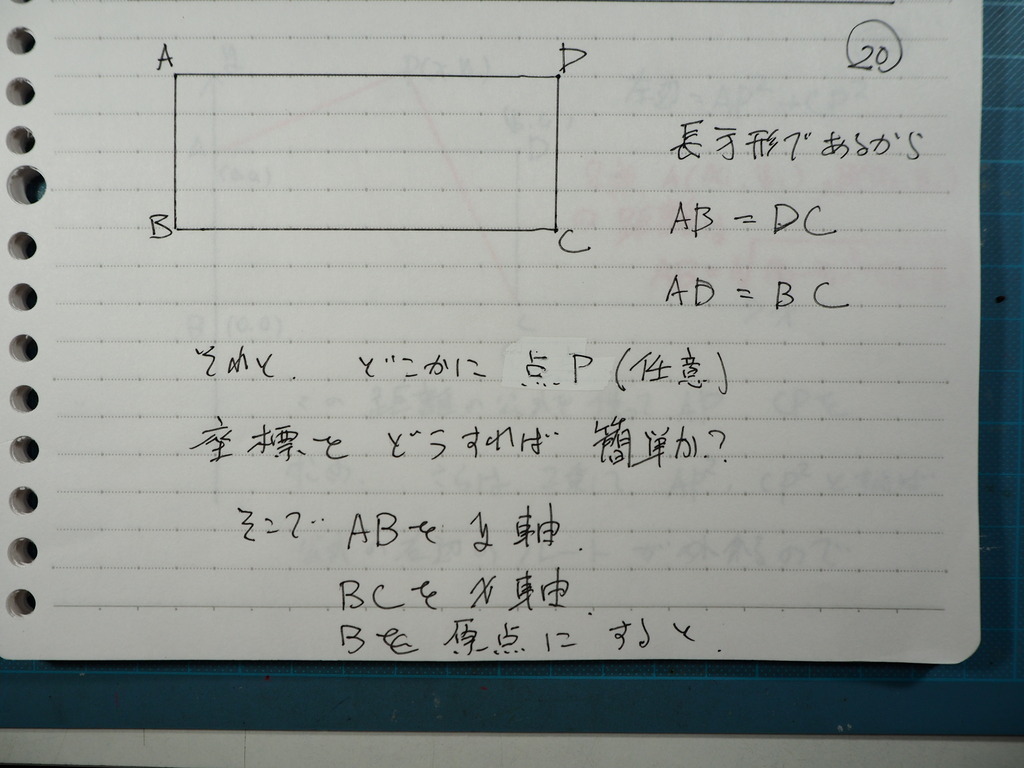 20
A D
B C
長方形であるから
AB = DC
AD = BC
それと、どこかに 点P (任意)
座標を どうすれば 簡単か?
そこで ABを y軸、
BCを x軸、
Bを 原点に すると、